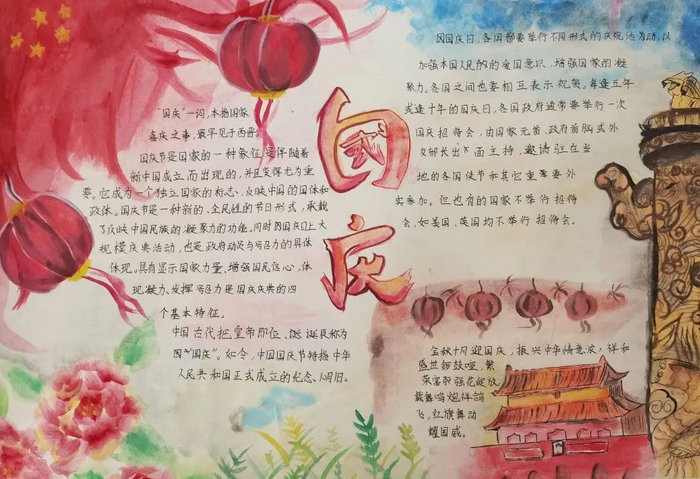 国庆
"国庆"一词，本指国家
喜庆之事，最早见于西晋。
国庆节是国家的一种象征，是伴随着
新中国成立而出现的，并且变得尤为重
要。它成为一个独立国家的标志，反映中国的国体和
政体。国庆节是一种新的、全民性的节日形式，承载
了反映中国民族的凝聚力的功能。同时国庆日上大
规模庆典活动，也是政府动员与号召力的具体
体现。具有显示国家力量、增强国民信心，体
现凝聚力、发挥号召力是国庆庆典的四
个基本特征。
中国古代把皇帝即位、诞辰称为
"国庆"。如今，中国国庆节特指中华
人民共和国正式成立的纪念
国庆日，各国都要举行不同形式的庆祝活动，以
加强本国人民的爱国意识，增强国家的凝
聚力。各国之间也要相互表示祝贺。每逢五年
或逢十年的国庆日，各国政府通常要举行一次
国庆招待会，由国家元首、政府首脑或外
交部长出面主持，邀请驻在当
地的各国使节和其它重要外
宾参加。但也有的国家不举行招待
会，如美国、英国均不举行招待会。
金秋十月迎国庆，振兴中华情意浓，祥和
盛世锣鼓喧，繁
荣富强花绽放
载舞鸣炮伴鸽
飞，红旗舞动
耀国威。